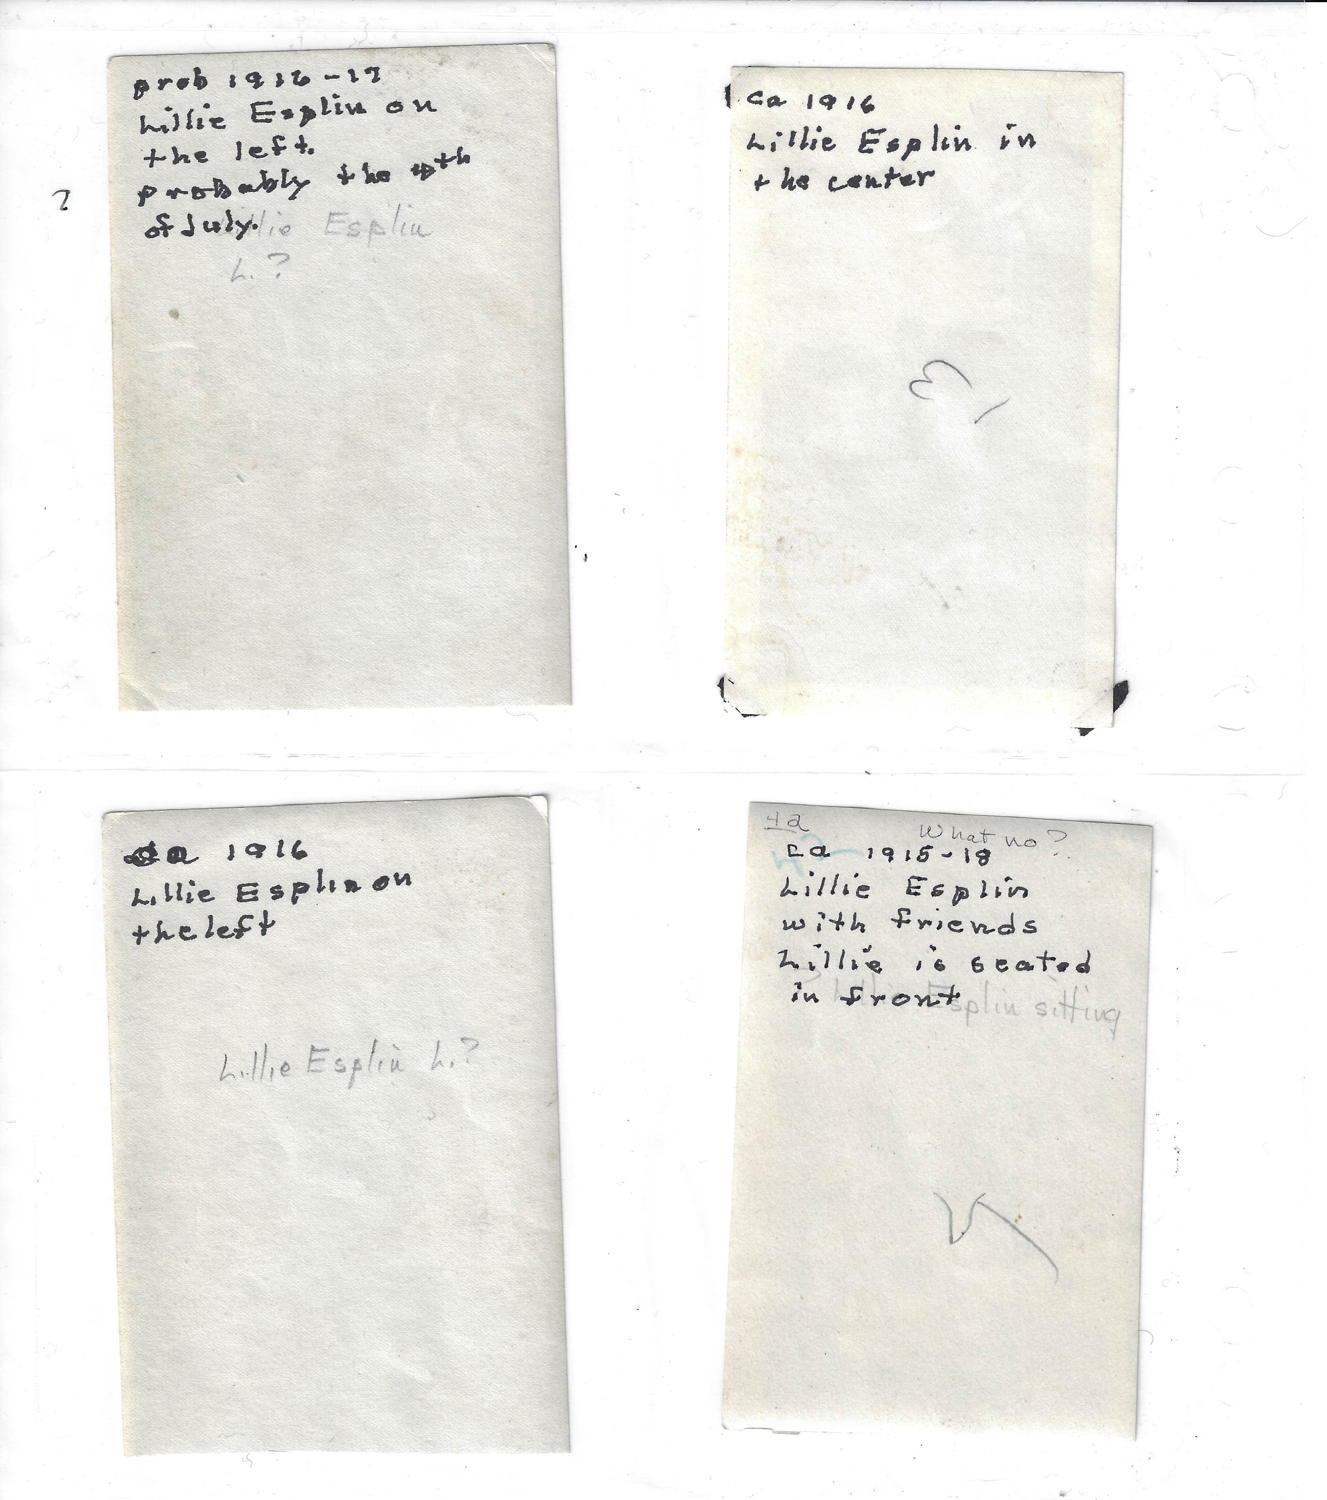 prob 1916-17
Lillie Esplin on
the left.
probably the 4th
of July.
Lillie Esplin
L.?
?
ca 1916
Lillie Esplin in
the center
3
ca 1916
Lillie Esplin on
the left
Lillie Esplin L.?
42
What no?
ca 1915-18
Lillie Esplin
with friends
Lillie is seated
in front
Lillie Esplin sitting